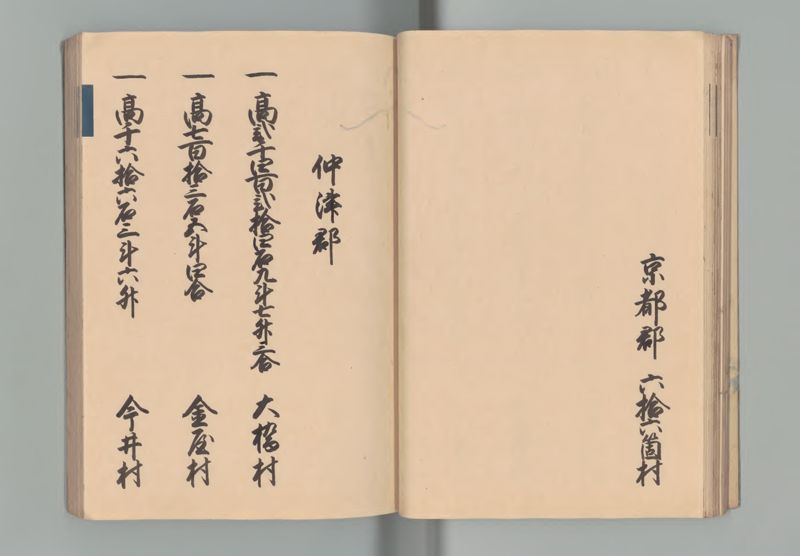 京都郡 六拾六箇村
仲津郡
一 高弐千四百弐拾四石九斗七升三合 大橋村
一 高七百拾三石五斗四合 金屋村
一 高千六拾六石三斗六升 今井村